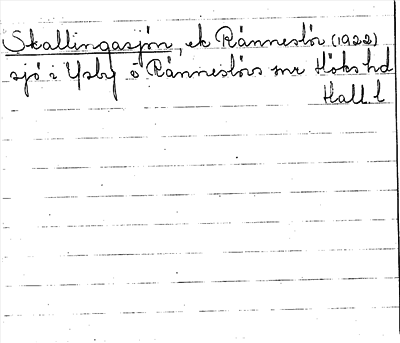 Skallingasjön, ek Ränneslöv (1922)
sjö i Ysby o Ränneslövs snr Höks hd
Hall l